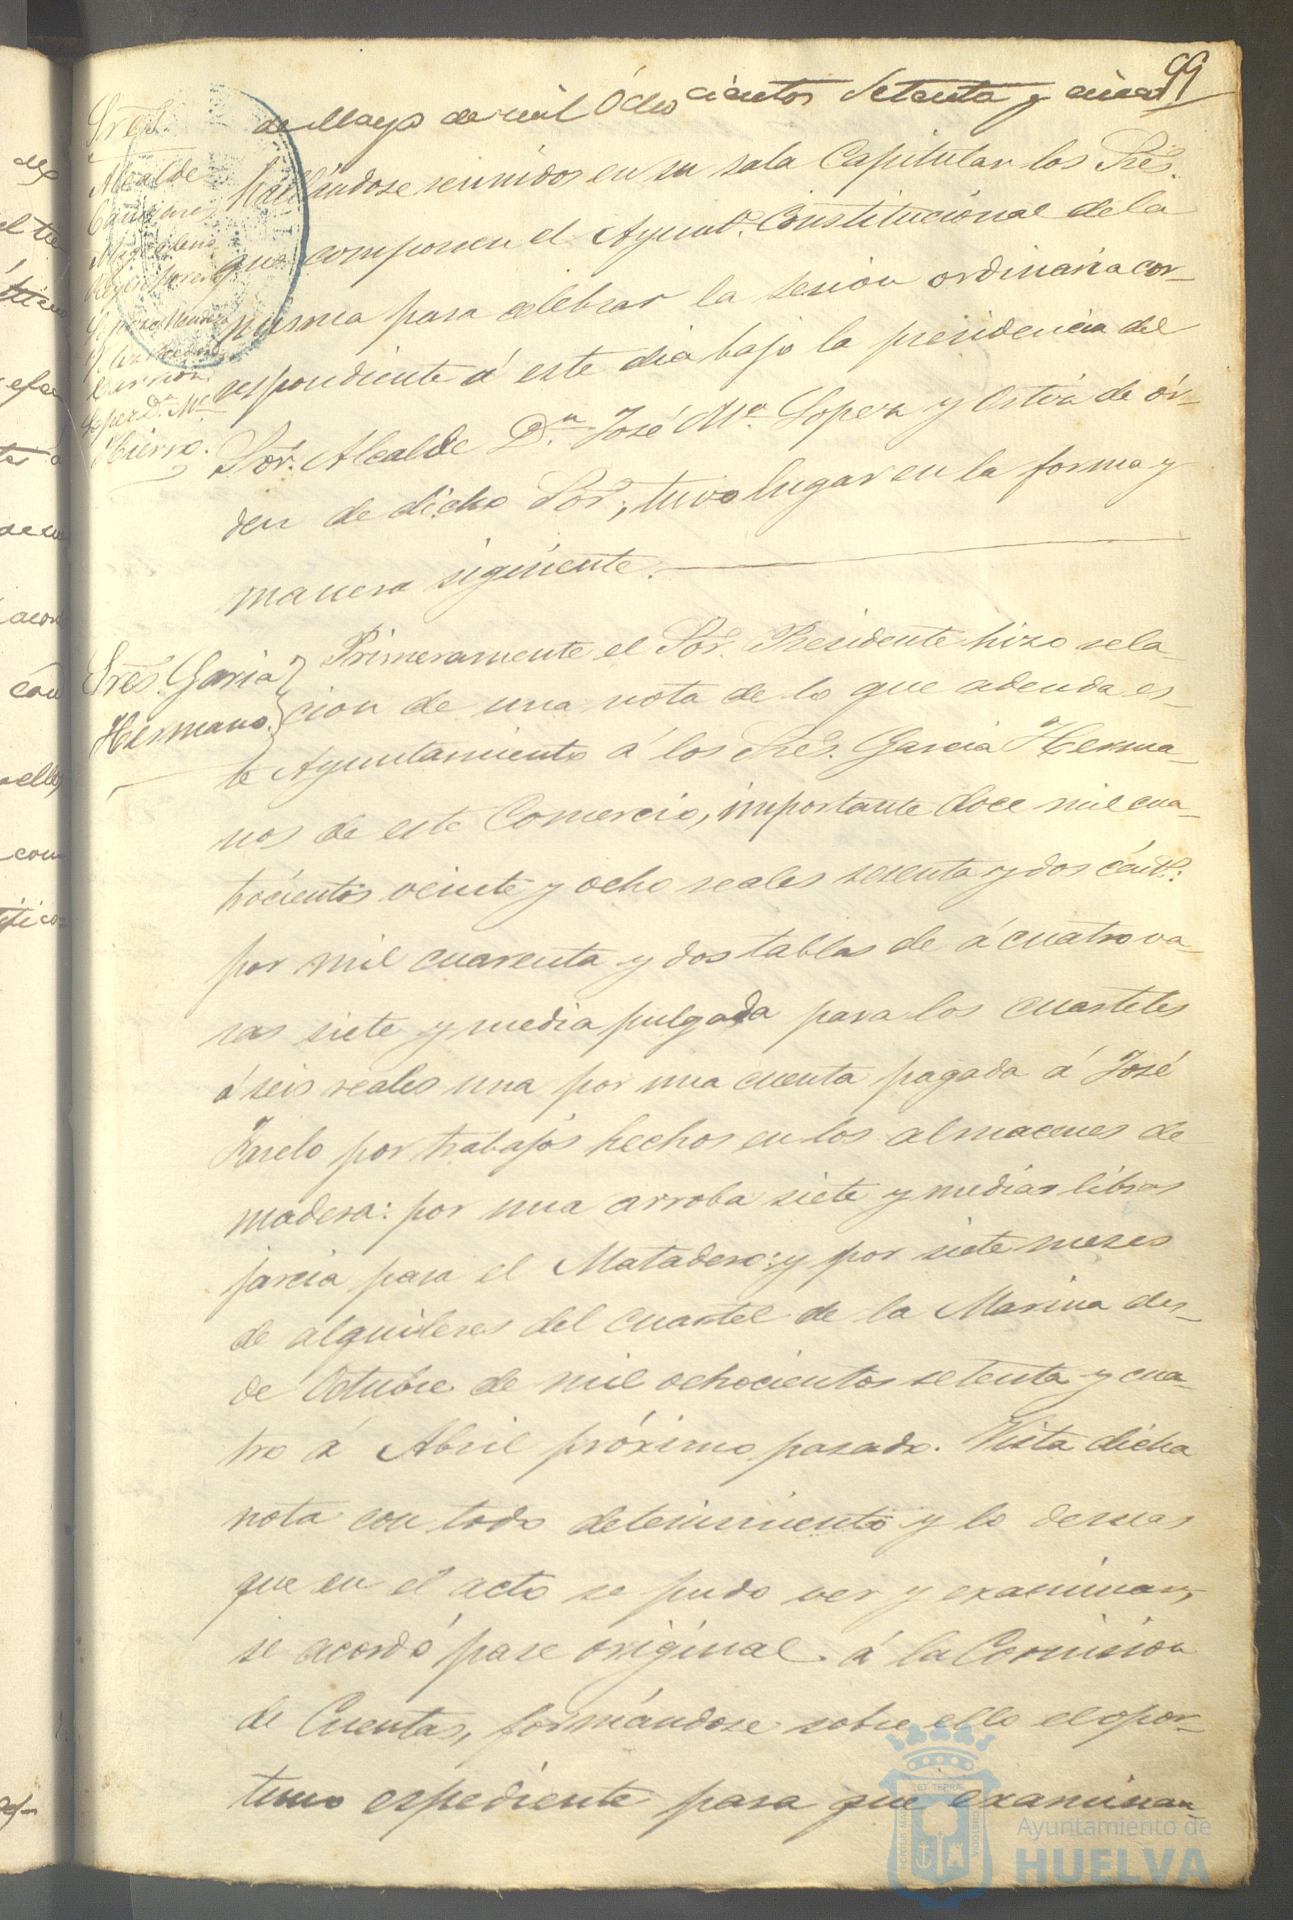 99
de Mayo de mil Ocho cientos Setenta y cinco
Sres.
Alcalde
hallándose reunidos en su sala Capitular los Sres.
que componen el Ayunto. Constitucional de la
misma para celebrar la sesion ordinaria cor-
respondiente á este dia bajo la presidencia del
Carrion.
Hierro.
Sor. Alcalde Dn. José Ma. Lopera y Ortiz de ór-
den de dicho Sor, tuvo lugar en la forma y
manera siguiente.
Sres. Garcia
Hermano.
Primeramente el Sor. Presidente hizo rela-
cion de una nota de lo que adeuda es-
te Ayuntamiento á los Sres. Garcia Herma-
nos de este Comercio, importante doce mil cua-
trocientos veinte y ocho reales sesenta y dos cént.:
por mil cuarenta y dos tablas de á cuatro va-
ras siete y media pulgada para los cuarteles
á seis reales una por una cuenta pagada á José
por trabajos hechos en los almacenes de
madera: por una arroba siete y medias libras
jarcia para el Matadero: y por siete meses
de alquileres del cuartel de la Marina des-
de Octubre de mil ochocientos setenta y cua-
tro á Abril próximo pasado. Vista dicha
nota con todo detenimiento y lo demas
que en el acto se pudo ver y examinar,
se acordó pase original á la Comision
de Cuentas, formándose sobre ello el opor-
tuno espediente para que examinan
Ayuntamiento de
HUELVA